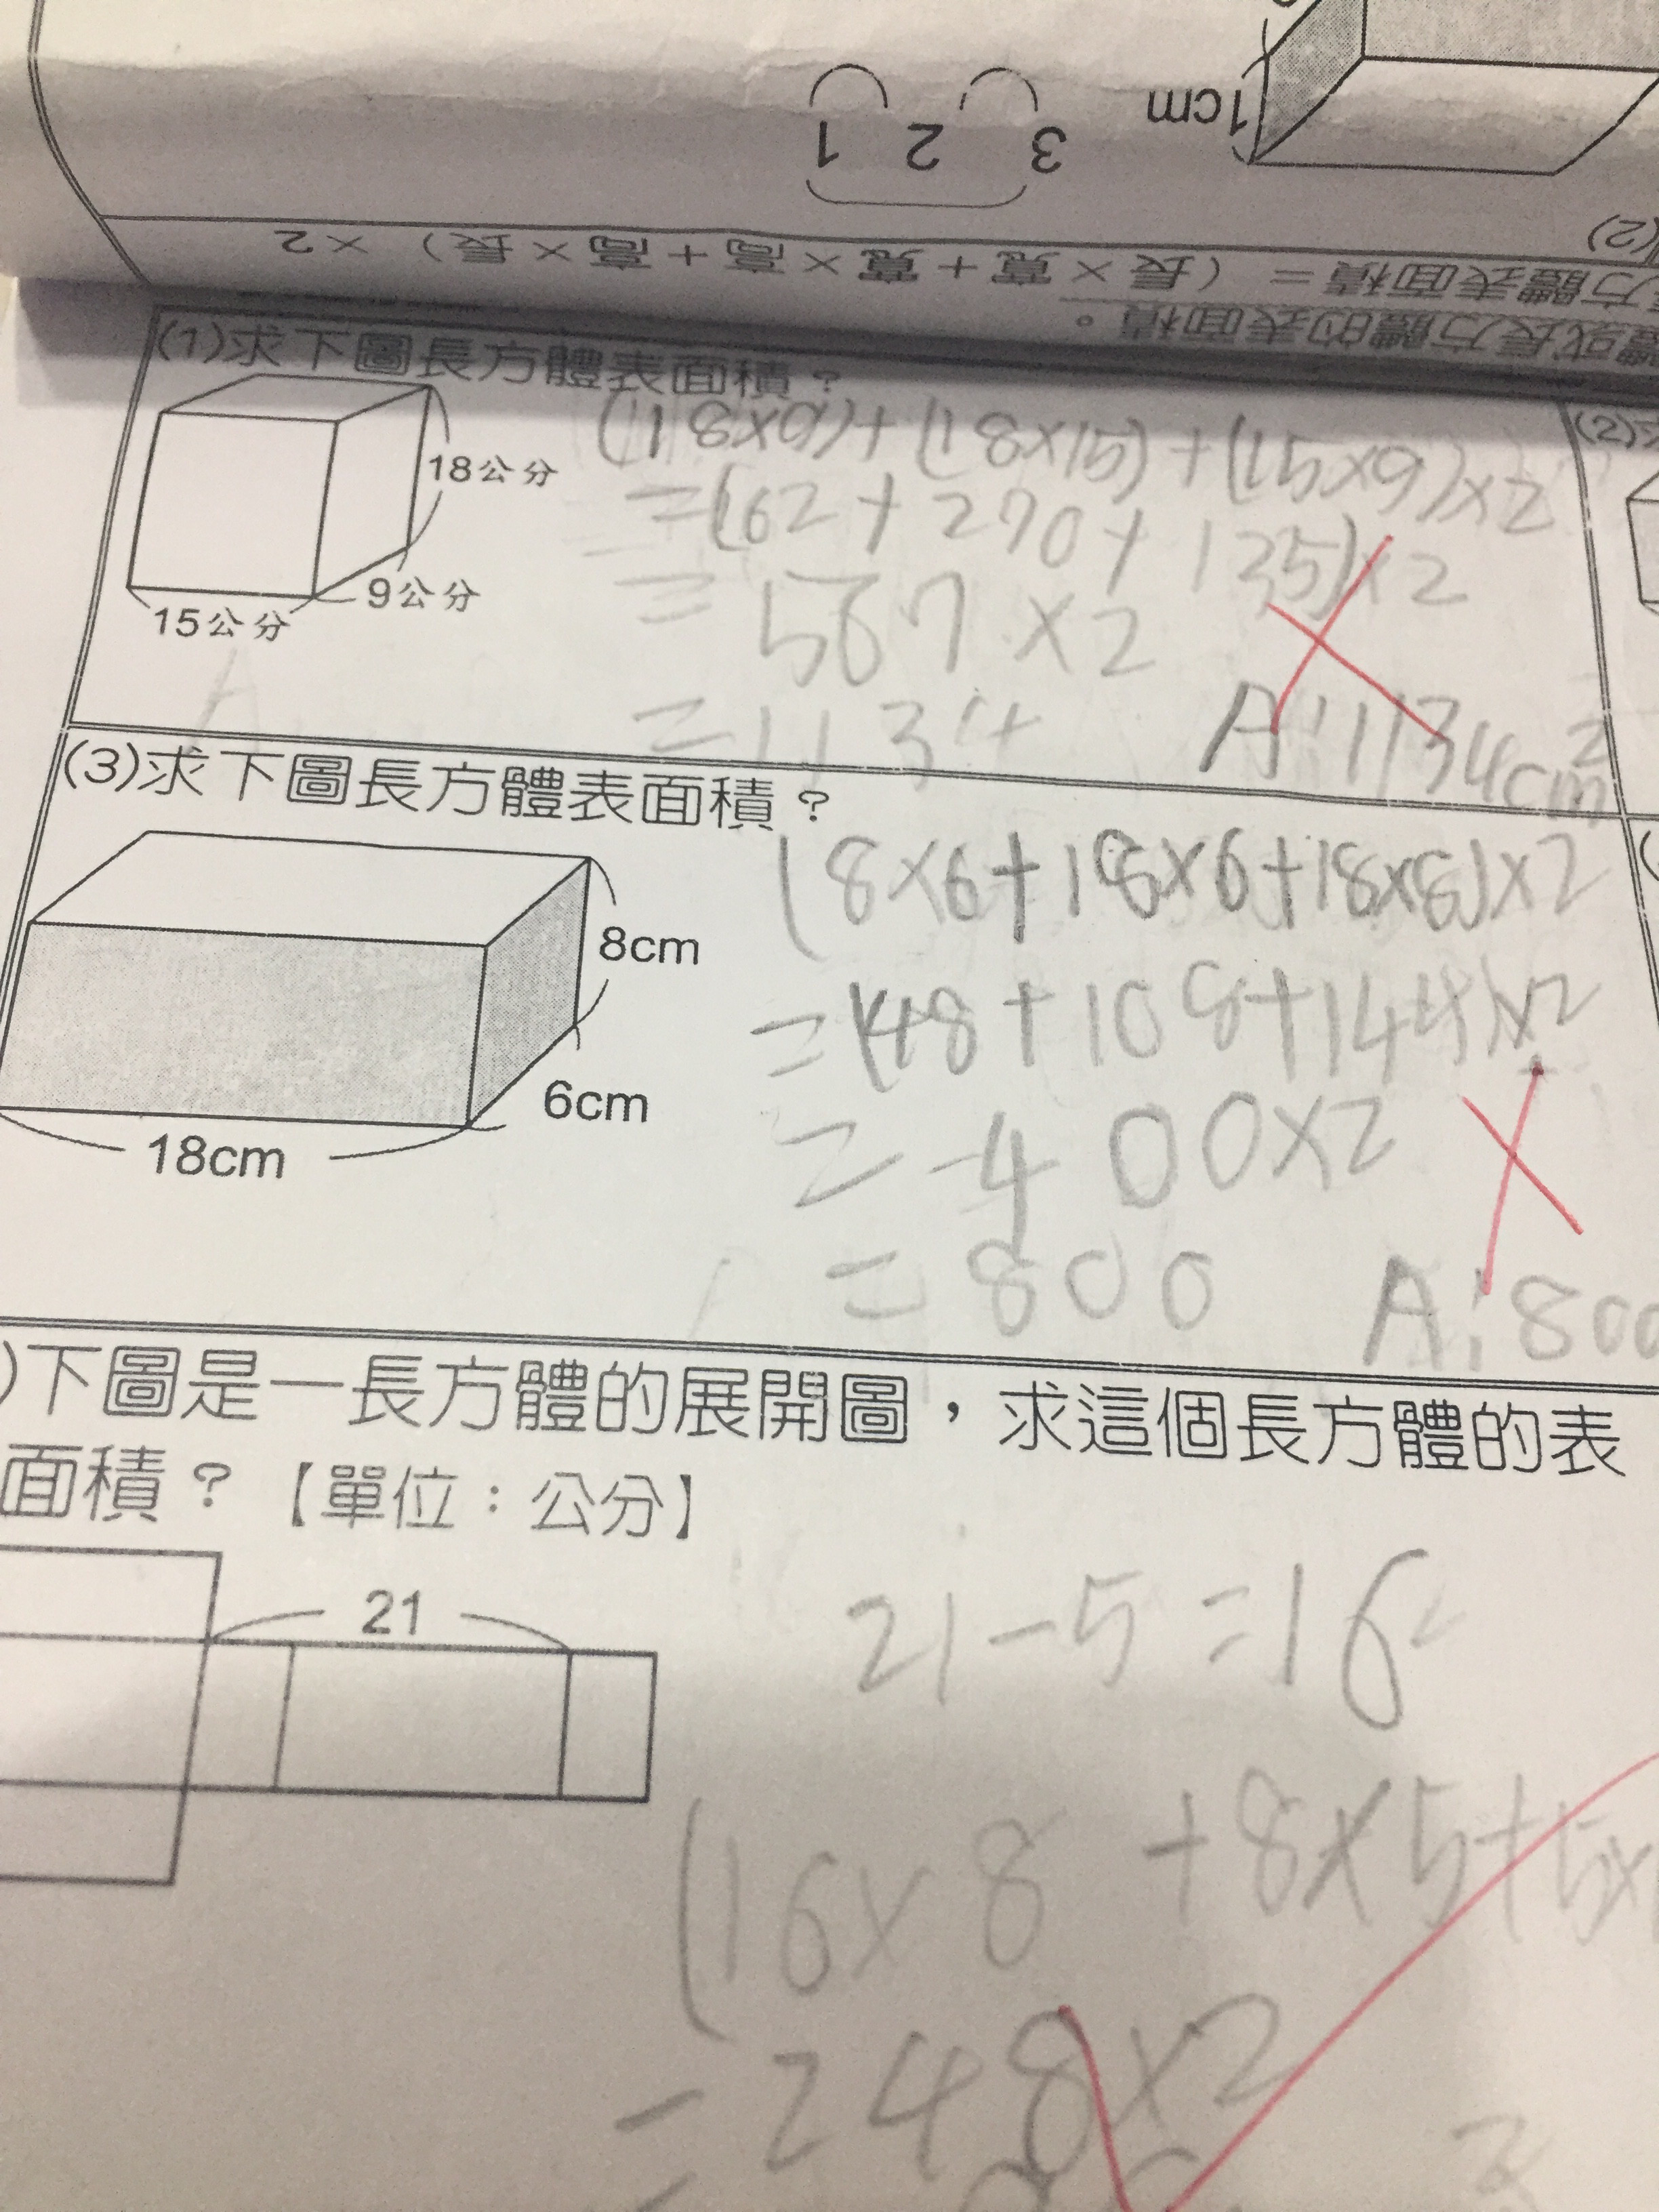 1cm
3 2 1
(2)
方體表面積＝（長×寬＋寬×高＋高×長）×2
體或長方體的表面積。
(1)求下圖長方體表面積？
(18×9)+(18×15)+(15×9)×2
18公分
=(162+270+135)×2
9公分
15公分
=567×2
=1134
A:1134cm²
(2)
(3)求下圖長方體表面積？
(8×6+18×6+18×8)×2
8cm
=(48+108+144)×2
6cm
18cm
=400×2
=800
A:800
)下圖是一長方體的展開圖，求這個長方體的表
面積？【單位：公分】
21
21-5=16
(16×8+8×5+5×
=248×2